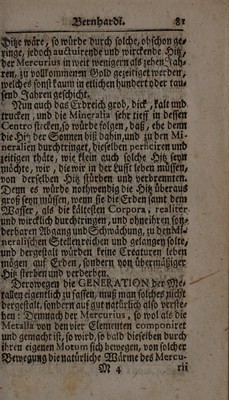 Bernhardi. 81
Hitze wäre, so würde durch solche, obschon ge-
ringe, jedoch auctuirende und wirckende Hitz,
der Mercurius in weit wenigern als zehen Jah-
ren, zu vollkommenen Gold gezeitiget werden,
welches sonst kaum in etlichen hundert oder tau-
send Jahren geschicht.
Nun auch das Erdreich grob, dick, kalt und
trucken, und die Mineralia sehr tieff in dessen
Centro stecken, so würde folgen, daß, ehe denn
die Hitz der Sonnen biß dahin, und zu den Mi-
neralien durchtringet, dieselben perficiren und
zeitigen thäte, wie klein auch solche Hitz seyn
möchte, wir, die wir in der Lufft leben müssen,
von derselben Hitz stürben und verbrenneten.
Denn es würde nothwendig die Hitz überaus
groß seyn müssen, wenn sie die Erden samt dem
Wasser, als die kältesten Corpora, realiter
und wircklich durchtringen, und ohne ihren son-
derbaren Abgang und Schwächung, zu den Mi-
neralischen Stellen reichen und gelangen solte,
und dergestalt würden keine Creaturen leben
mögen auf Erden, sondern von übermäßiger
Hitz sterben und verderben.
Derowegen die GENERATION der Me-
tallen eigentlich zu fassen, muß man solches nicht
dergestalt, sondern auf gut natürlich also verste-
hen: Demnach der Mercurius, so wol als die
Metalla von den vier Elementen componiret
und gemacht ist, so wird, so bald dieselben durch
ihren eigenen Motum sich bewegen, von solcher
Bewegung die natürliche Wärme des Mercu-
M 4 rii